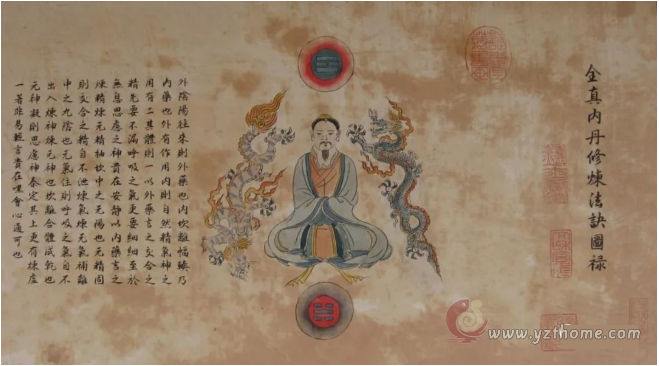 全真内丹修煉法訣圖祿
外陰陽往来則外藥也内坎離幅臻乃
内藥也外有作用内則自然精氣神之
用有二其體則一以外藥言之交合之
精先要不漏呼吸之氣更要細細至於
無息思慮之神貴在安靜以内藥言之
煉精煉元精抽坎中之元陽也元精固
則交合之精自不洩煉氣煉元氣補離
中之九陰也元氣住則呼吸之氣自不
出入煉神煉元神也坎離合體成乾也
元神凝則思慮神泰定其上更有煉虛
一著非易輕言貴在嘿會心通可也
www.yzthome.com